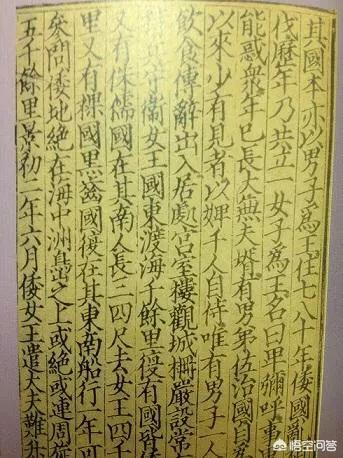 其國本亦以男子爲王住七八十年倭國
伐歷年乃共立一女子爲王名曰卑彌呼事
能惑衆年已長大無夫壻有男弟佐治國自
以來少有見者以婢千人自侍唯有男子一
飲食傳辭出入居處宮室樓觀城柵嚴設常
兵守衛女王國東渡海千餘里復有國皆
又有侏儒國在其南人長三四尺去女王四千
里又有裸國黑齒國復在其東南船行一年可
參問倭地絶在海中洲島之上或絶或連周旋
五千餘里景初二年六月倭女王遣大夫難升
悟空问答